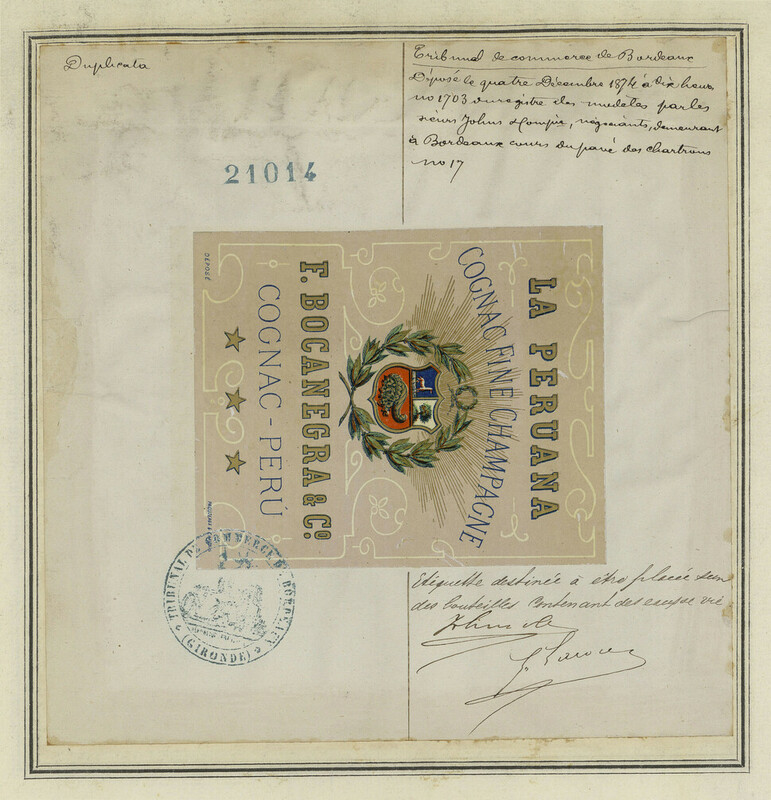 Duplicata
Tribunal de commerce de Bordeaux
Déposé le quatre Décembre 1874 à dix heures
no 1703 du registre des modèles par les
sieurs Johns & Compie, négociants, demeurant
à Bordeaux cours du pavé des chartrons
no 17
21014
LA PERUANA
COGNAC FINE CHAMPAGNE
F. BOCANEGRA & Co
COGNAC - PERÚ
DEPOSÉ
TRIBUNAL DE COMMERCE DE BORDEAUX
(GIRONDE)
Etiquette destinée à être placée sur
des bouteilles contenant des eaux de vie